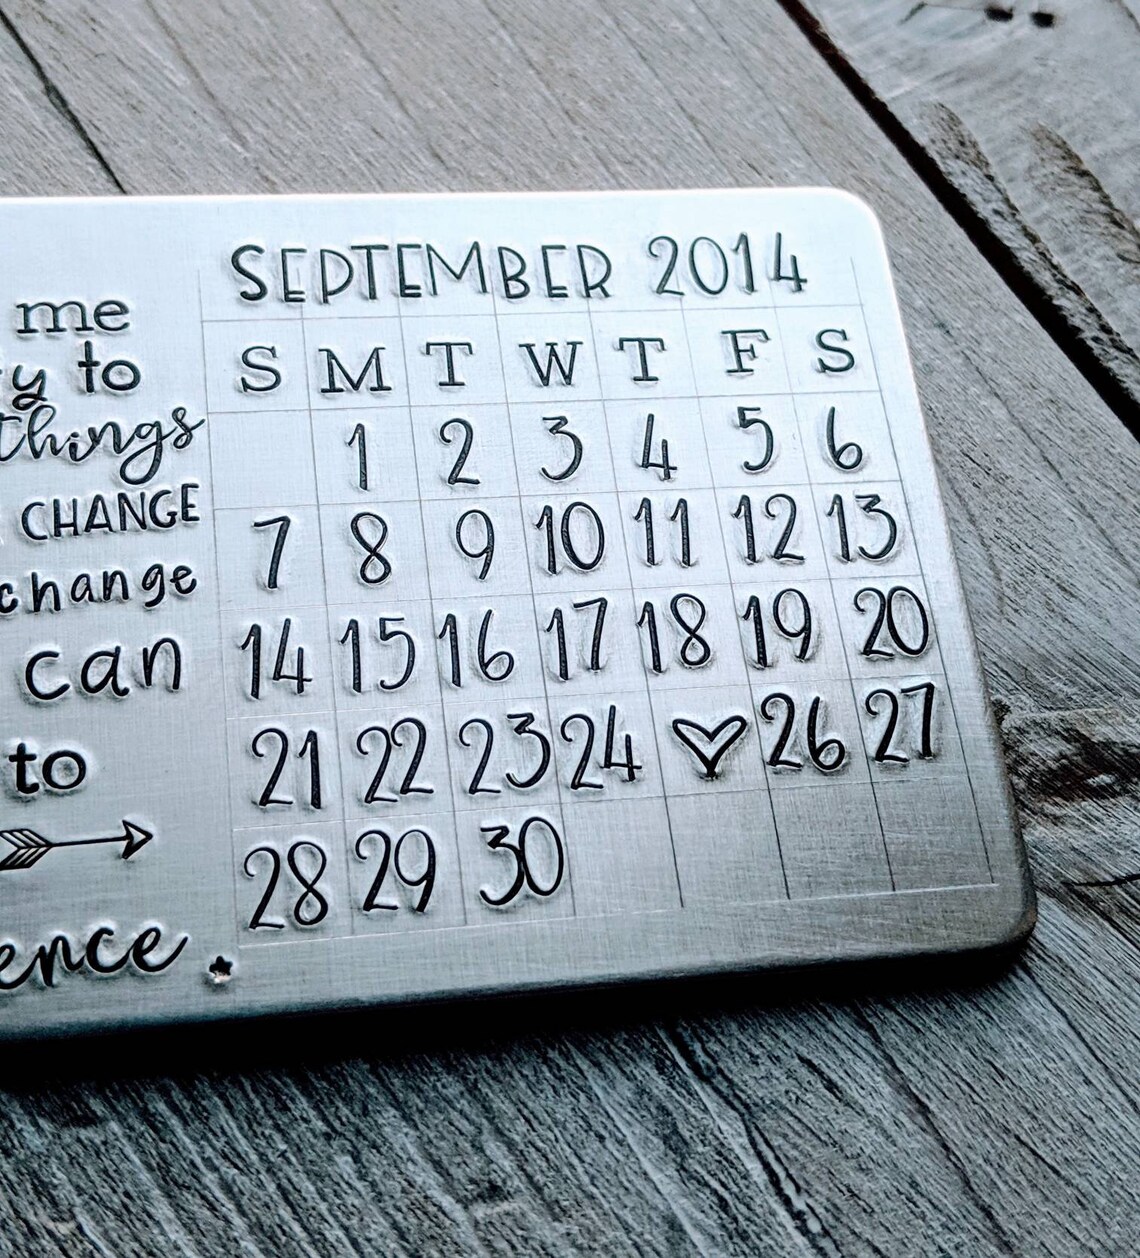 me
y to
things
CHANGE
change
can
to
ence.
SEPTEMBER 2014
S M T W T F S
1 2 3 4 5 6
7 8 9 10 11 12 13
14 15 16 17 18 19 20
21 22 23 24 ♡ 26 27
28 29 30